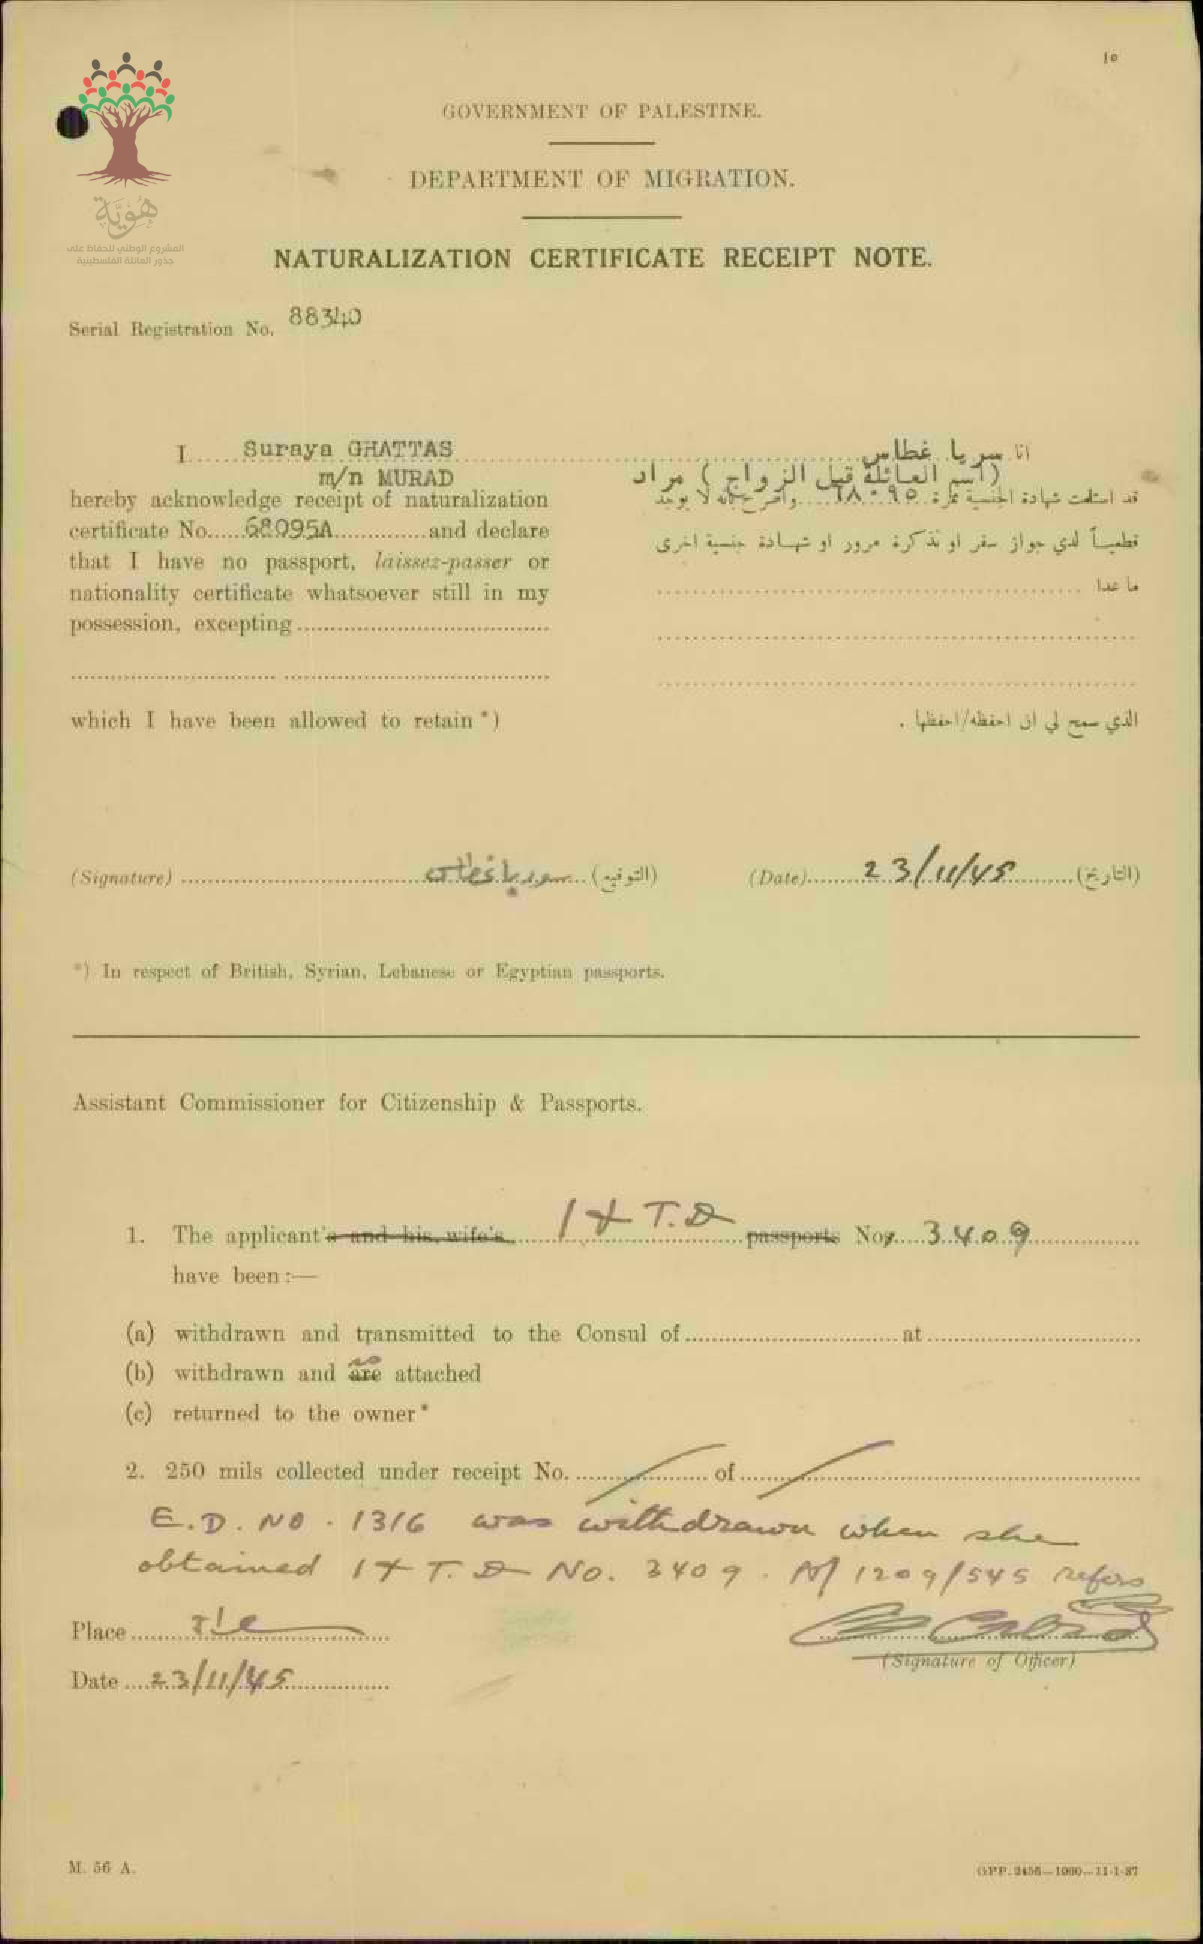 10
هُوِيَّة
المشروع الوطني للحفاظ على
جذور العائلة الفلسطينية
GOVERNMENT OF PALESTINE.
DEPARTMENT OF MIGRATION.
NATURALIZATION CERTIFICATE RECEIPT NOTE.
Serial Registration No. 88340
I Suraya GHATTAS
m/n MURAD
hereby acknowledge receipt of naturalization
certificate No. 68095A and declare
that I have no passport, laissez-passer or
nationality certificate whatsoever still in my
possession, excepting
which I have been allowed to retain *)
انا سريا غطاس
(اسم العائلة قبل الزواج) مراد
قد استلمت شهادة الجنسية نمرة ٦٨٠٩٥ واصرح بانه لا يوجد
قطعياً لدي جواز سفر او تذكرة مرور او شهادة جنسية اخرى
ما عدا
الذي سمح لي ان احفظه/احفظها .
(Signature) سوريا غطاس (التوقيع) (Date) 23/11/45 (التاريخ)
*) In respect of British, Syrian, Lebanese or Egyptian passports.
Assistant Commissioner for Citizenship & Passports.
1. The applicant's and his wife's I & T.D passports Nos 3409
have been :—
(a) withdrawn and transmitted to the Consul of at
(b) withdrawn and are attached
(c) returned to the owner *
2. 250 mils collected under receipt No. of
E.D. No. 1316 was withdrawn when she
obtained I & T.D No. 3409. 1209/545 refers
Place
(Signature of Officer)
Date 23/11/45
M. 56 A.
GPP. 2456—1000—11-1-37